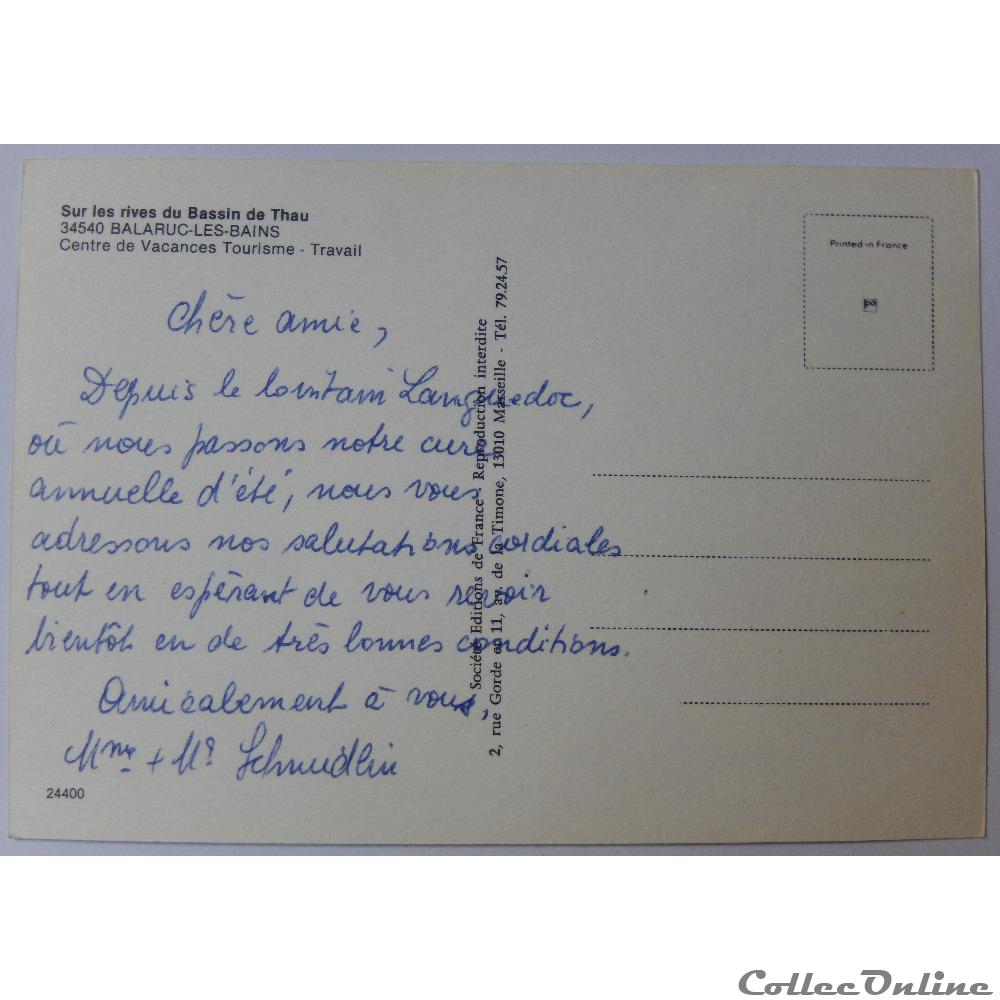 Sur les rives du Bassin de Thau
34540 BALARUC-LES-BAINS
Centre de Vacances Tourisme - Travail
Chère amie,
Depuis le lointain Languedoc,
où nous passons notre cure
annuelle d'été, nous vous
adressons nos salutations cordiales
tout en espérant de vous revoir
bientôt en de très bonnes conditions.
Amicalement à vous,
Mme + Mr Schmidlin
24400
Société Editions de France - Reproduction interdite
2, rue Gorde ou 11, av. de la Timone, 13010 Marseille - Tél. 79.24.57
Printed in France
CollecOnline